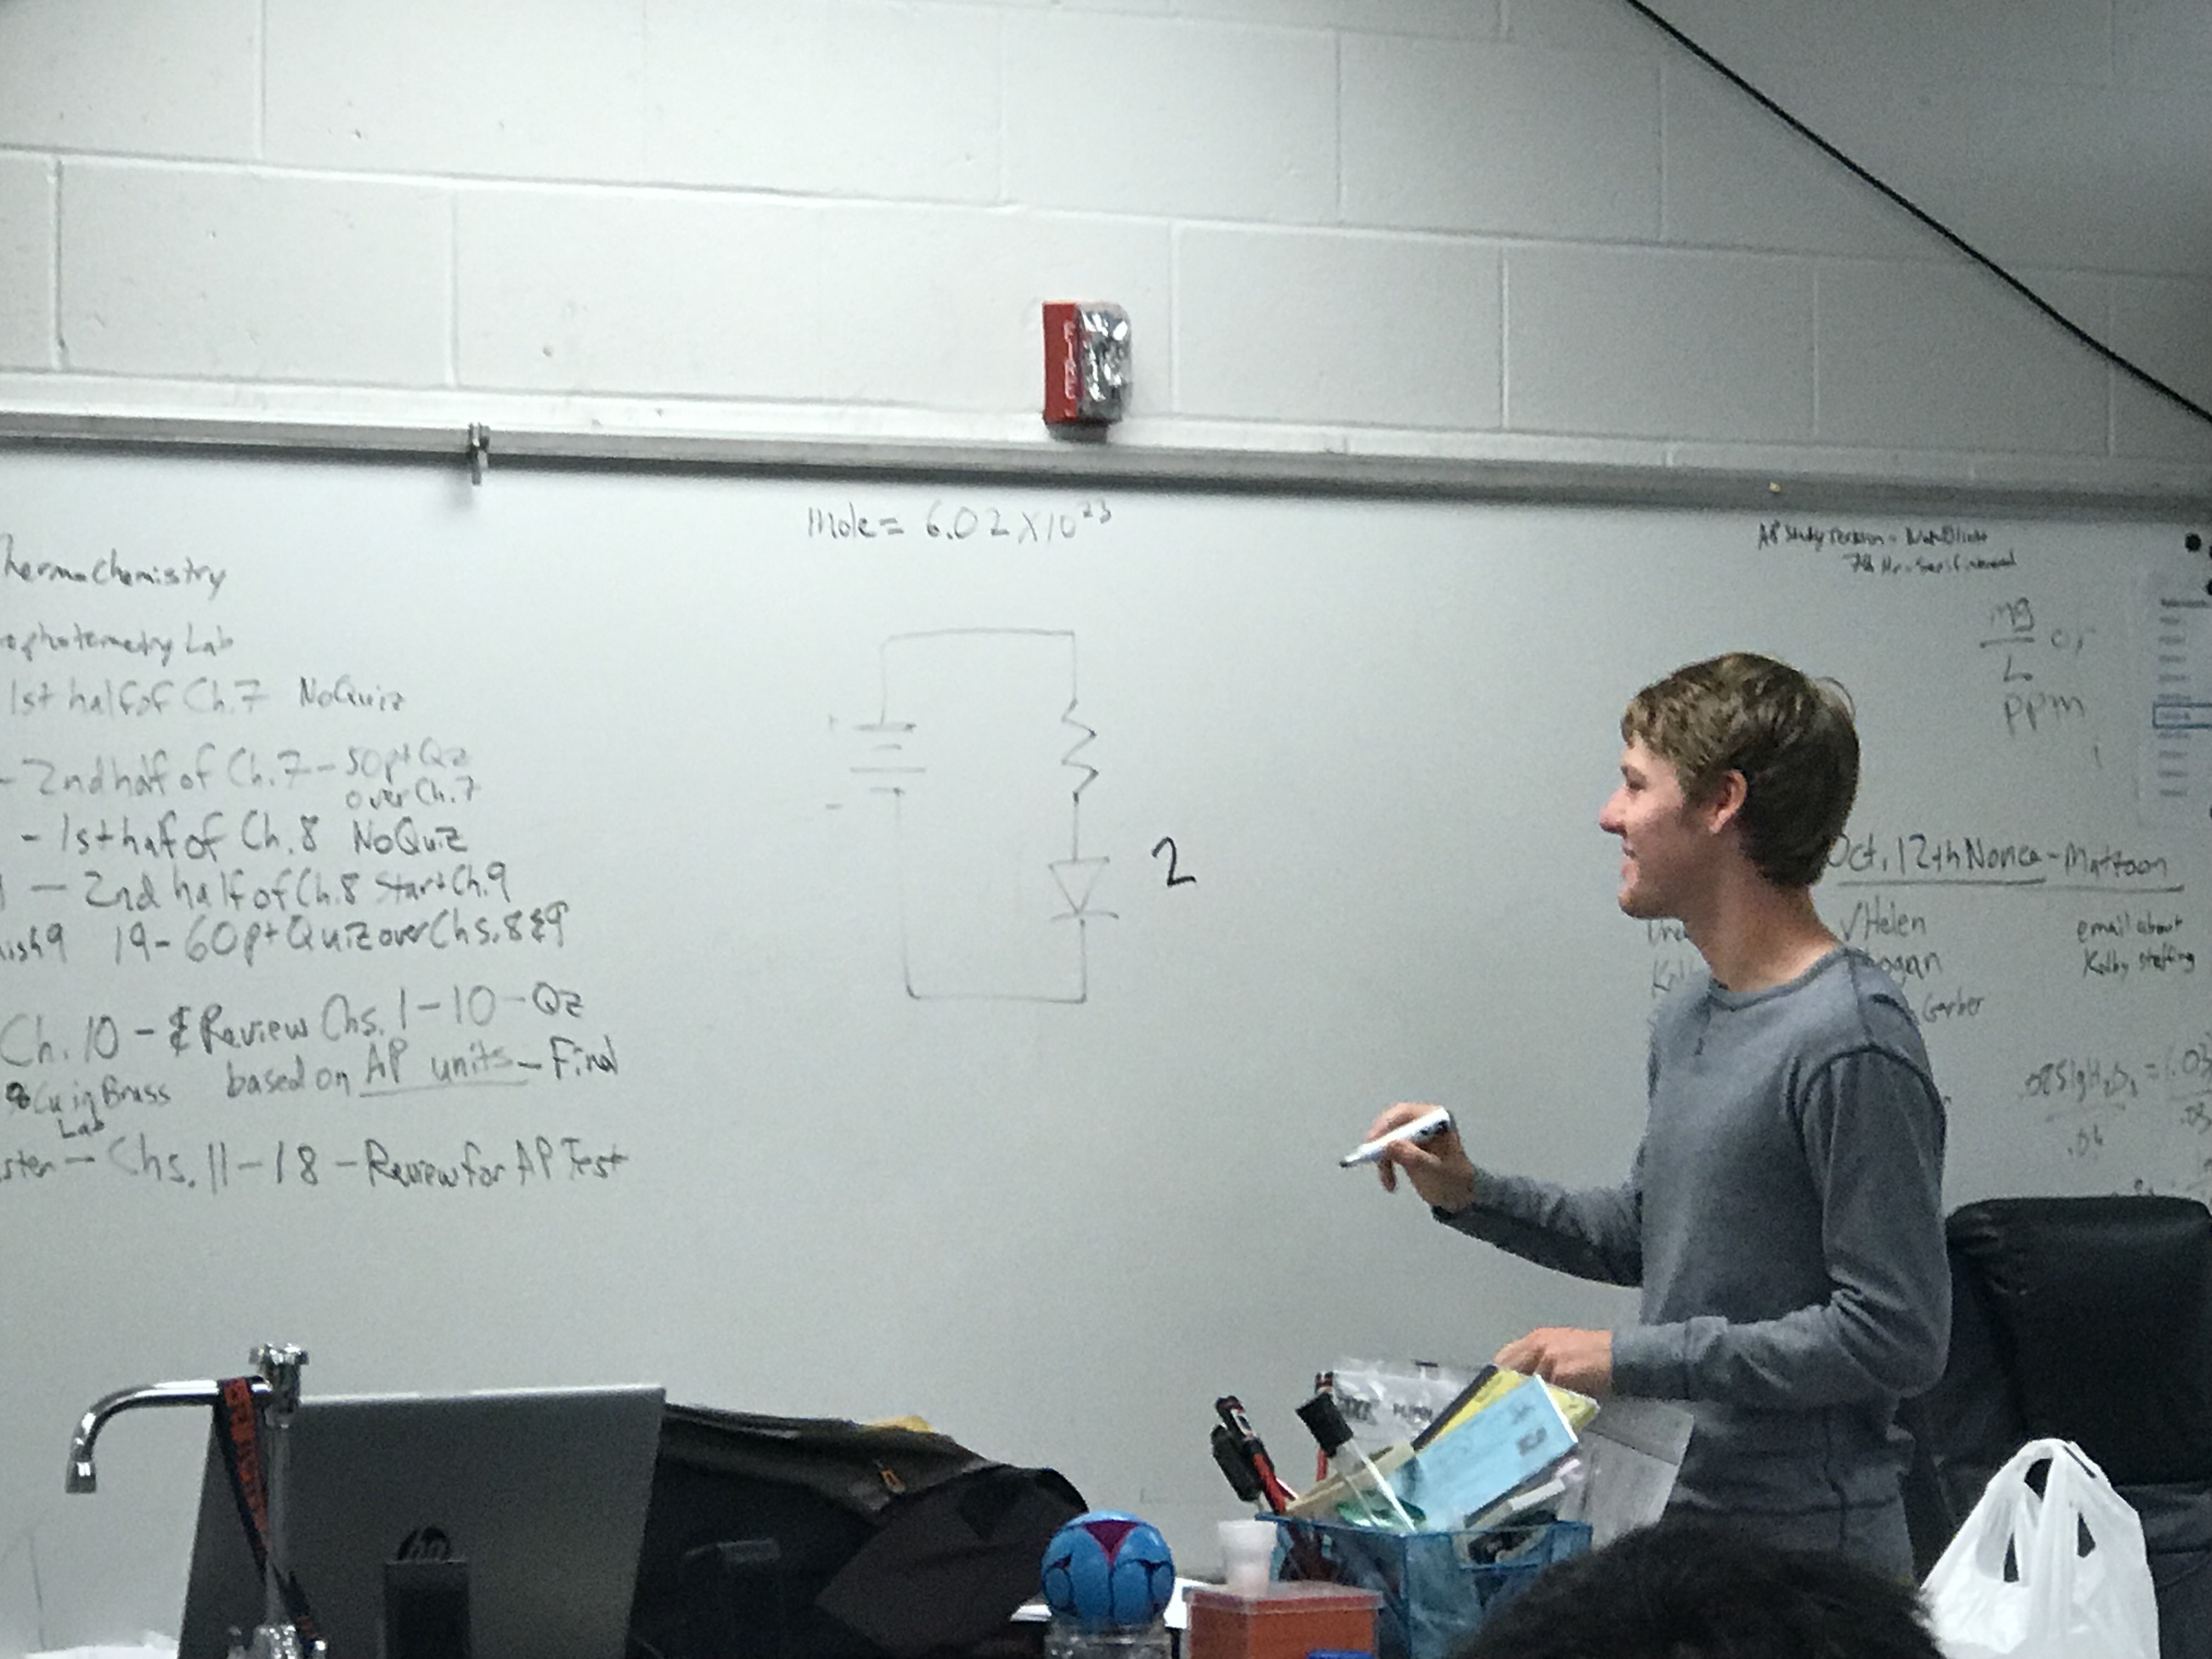 FIRE
mole = 6.02 X 10²³
hermochemistry
ophotometry Lab
1st half of Ch.7 No Quiz
- 2nd half of Ch.7 - 50pt Qz
over Ch.7
- 1st half of Ch.8 No Quiz
- 2nd half of Ch.8 Start Ch.9
ish 9 19 - 60pt Quiz over Chs. 8 & 9
Ch. 10 - & Review Chs. 1-10 - Qz
based on AP units - Final
% Cu in Brass
Lab
ster - Chs. 11-18 - Review for AP Test
+
-
2
AP Study
7th Hr.
mg
L
or
ppm
Oct. 12th - Mattoon
√ Helen
ogan
Garber
email about
Kolby staffing
hp